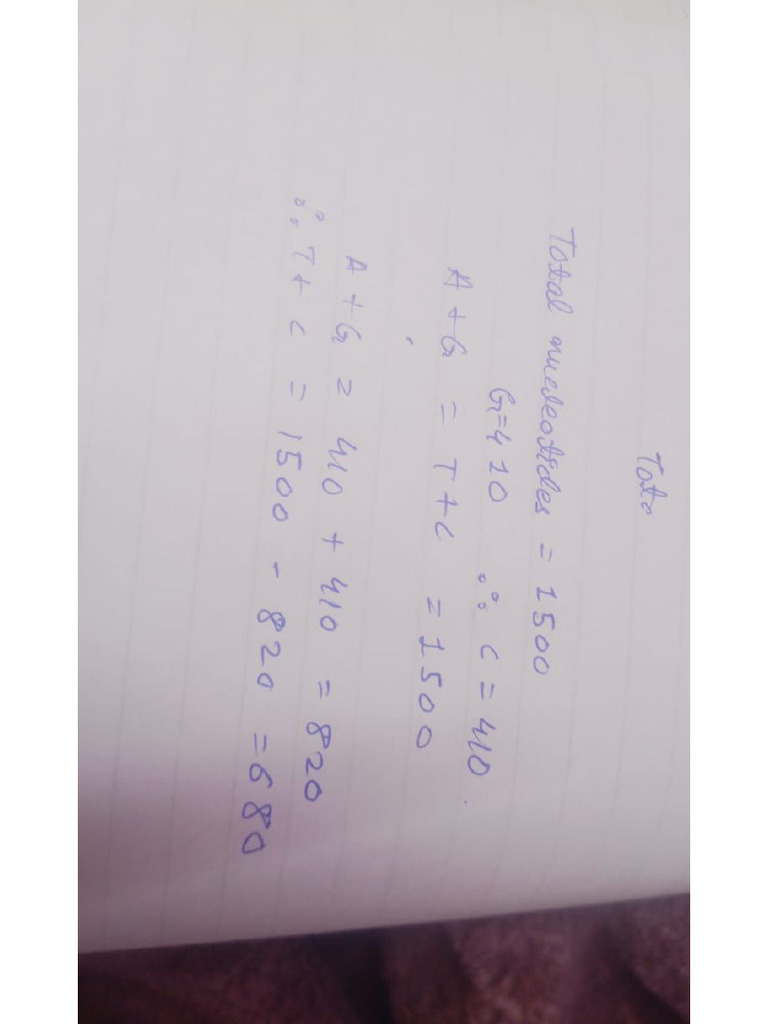 Toto
Total nucleotides = 1500
G=410 ∴ C = 410
A + G = T + C = 1500
A + G = 410 + 410 = 820
∴ T + C = 1500 - 820 = 680